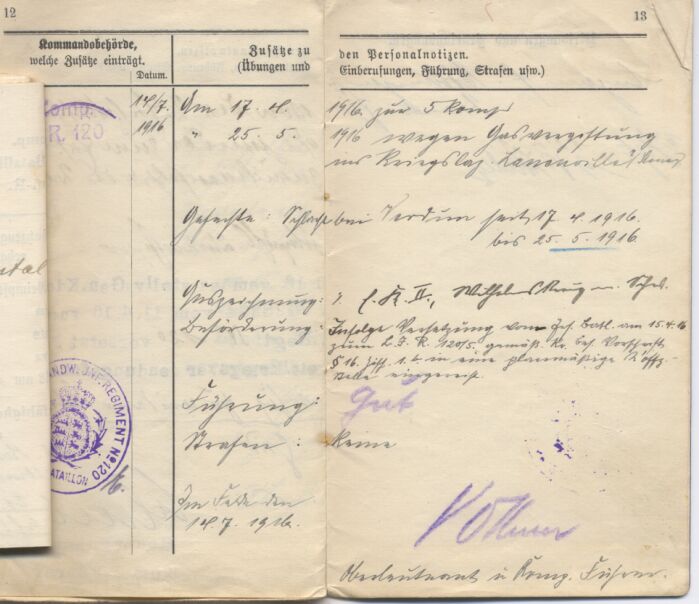 12
13
Kommandobehörde,
welche Zusätze einträgt.
Datum.
Zusätze zu
(Übungen und
den Personalnotizen.
Einberufungen, Führung, Strafen usw.)
Komp.
R. 120
14/7.
1916
Am 17. 4. 1916. zur 5 Komp.
" 25. 5. 1916 wegen Gasvergiftung
ins Kriegslaz.
Gefechte: Schlacht bei Verdun seit 17 4. 1916.
bis 25. 5. 1916.
Auszeichnung: E. K. II.,
Beförderung: Infolge Versetzung vom Batl. am 15.4.16
zum L. I. R. 120/5. gemäß
§ 16. Ziff. 1. b in eine planmäßige
Stelle eingereiht.
Führung: Gut
Strafen: keine
LANDW. INF. REGIMENT No 120
BATAILLON
Im Felde den
14. 7. 1916.
Oberleutnant u Komp. Führer.